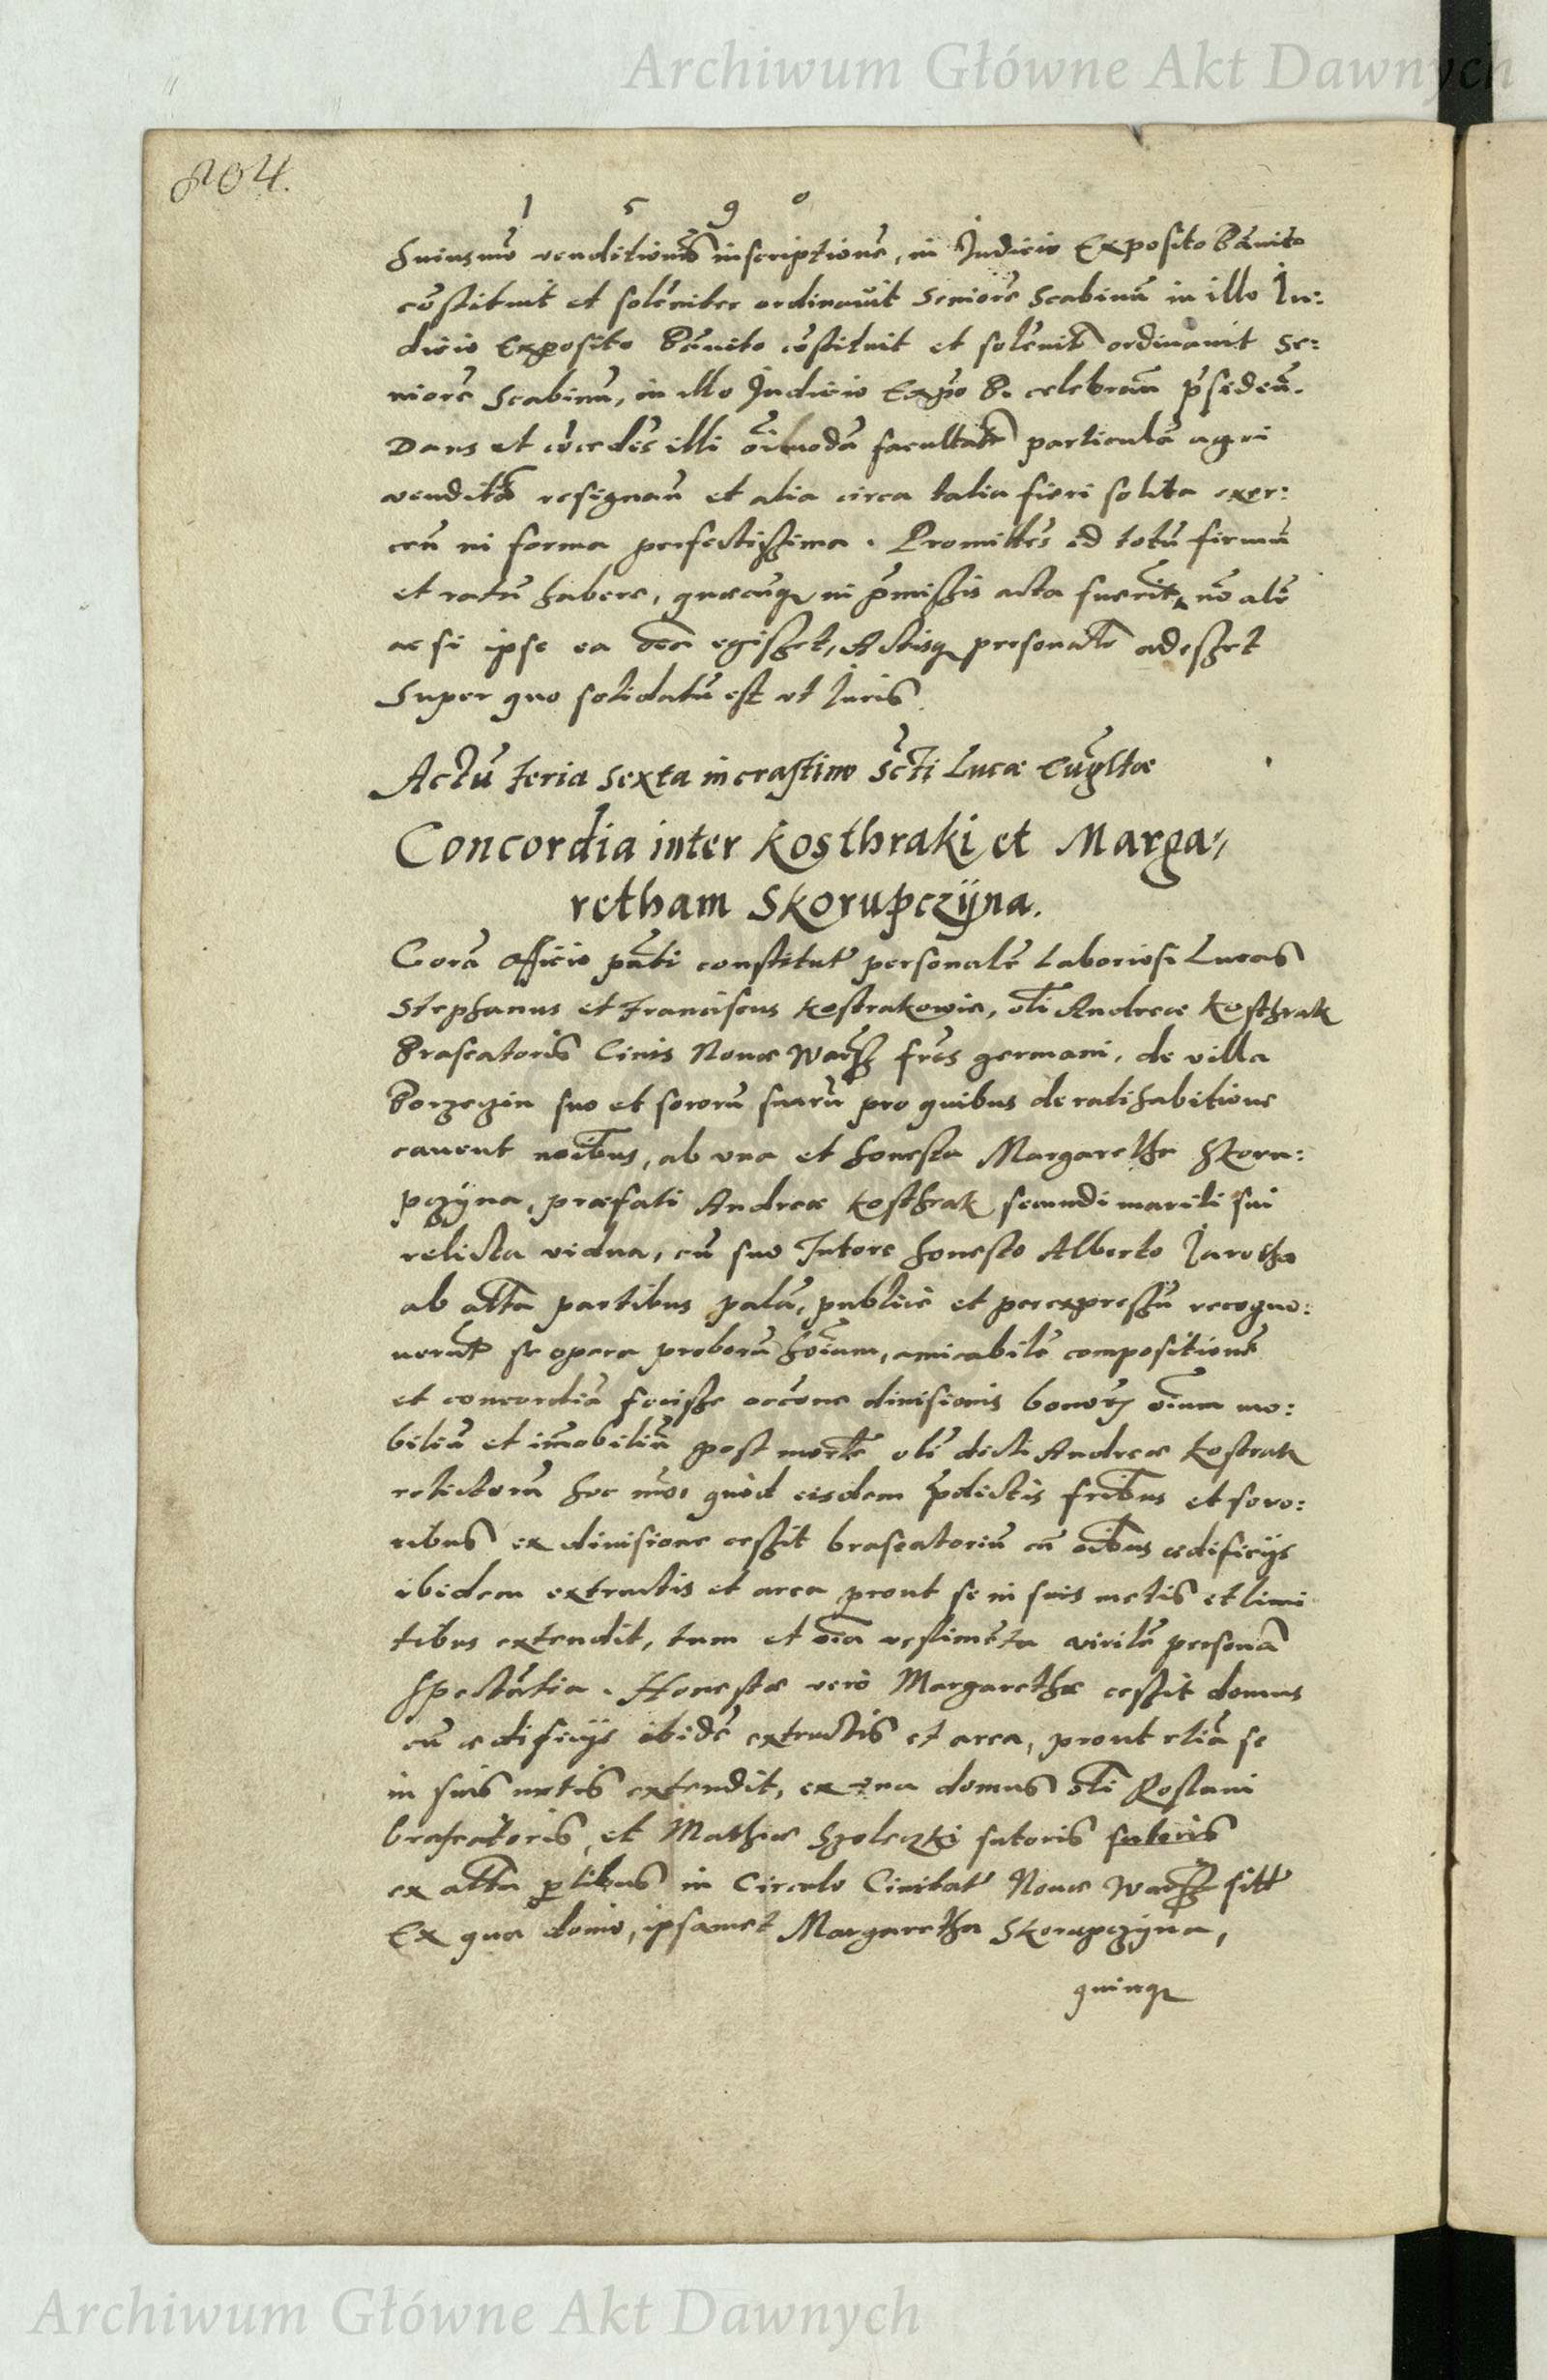 Archiwum Główne Akt Dawnych
204.
1 5 9 0
huiusmõ venditionis inscriptione, in Iudicio Exposito Bãnito
cõstituit et solẽniter ordinavit Seniorẽ Scabinũ in illo Iu:
dicio Exposito Bãnito cõstituit et solẽnit ordinavit Se:
niorẽ Scabinũ, in illo Iudicio Expõ B. celebrañ p̃sideñ.
Dans et cõcedẽs illi õimodã facultatẽ particulã agri
venditã resignañ et alia circa talia fieri solita exer:
ceñ in forma perfectissima. Promittẽs id totũ firmũ
et ratũ habere, quæcũq in p̃missis acta fuerit, nõ alr̃
ac si ipse ea õia egisset, Actisq personalr̃ adesset
Super quo solidatũ est ut Iuris.
Actũ feria Sexta in crastino Sc̃ti Lucæ Eũgltæ
Concordia inter Kosthraki et Marga,,
retham Skorupczÿna.
Corã Officio pñti constitut personalr̃ Laboriosi Lucas
Stephanus et Franciscus Kostrakowie, olĩ Andreæ Kosthrak
Braseatoris Civis Novæ Warsz fr̃es germani, de villa
Borzęzin suo et sororũ suarũ pro quibus de ratihabitione
cavent nõibus, ab vna et honesta Margaretha Skoru:
pczÿna, præfati Andreæ Kosthrak secundi mariti sui
relicta vidua, cũ suo Tutore honesto Alberto Iarotha
ab altã partibus palã, publice et per expressũ recogno:
verũt se opera proborũ hõium, amicabilẽ compositionẽ
et concordiã fecisse oc̃cõne divisionis bonorũ õium mo:
biliũ et im̃obiliũ post mortẽ olĩ dicti Andreæ Kostrak
relictorũ hoc mõ, quòd eisdem p̃dictis fr̃ibus et soro:
ribus ex divisione cessit braseatoriũ cũ õibus ædificijs
ibidem extructis et area prout se in suis metis et limi
tibus extendit, tum et õia vestimẽta virilẽ personã
spectãtia. Honestæ verò Margarethæ cessit domus
cũ ædificijs ibidẽ extructis et area, prout etiã se
in suis metis extendit, ex vna domus olĩ Roslani
braseatoris, et Mathiæ Szoleczki sutoris sutoris
ex altã ptibus in Circulo Civitat Novæ Warsz sitæ
Ex qua domo, ipsamet Margaretha Skorupczÿna,
quinq
Archiwum Główne Akt Dawnych